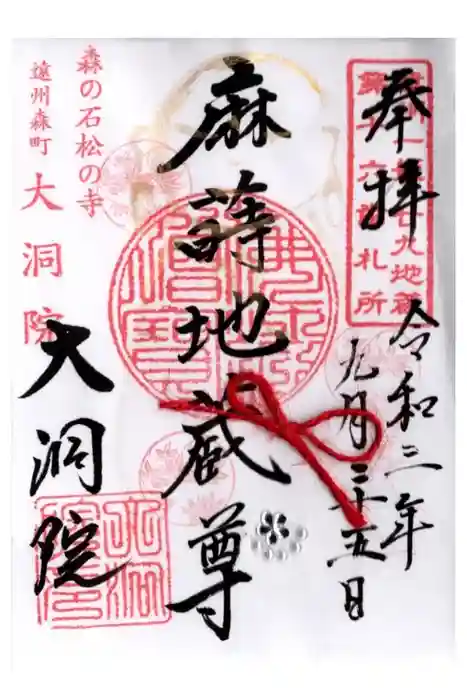 奉拝
廿九地蔵
札所
令和三年
九月二十五日
麻蒔地蔵尊
森の石松の寺
遠州森町
大洞院
大洞院